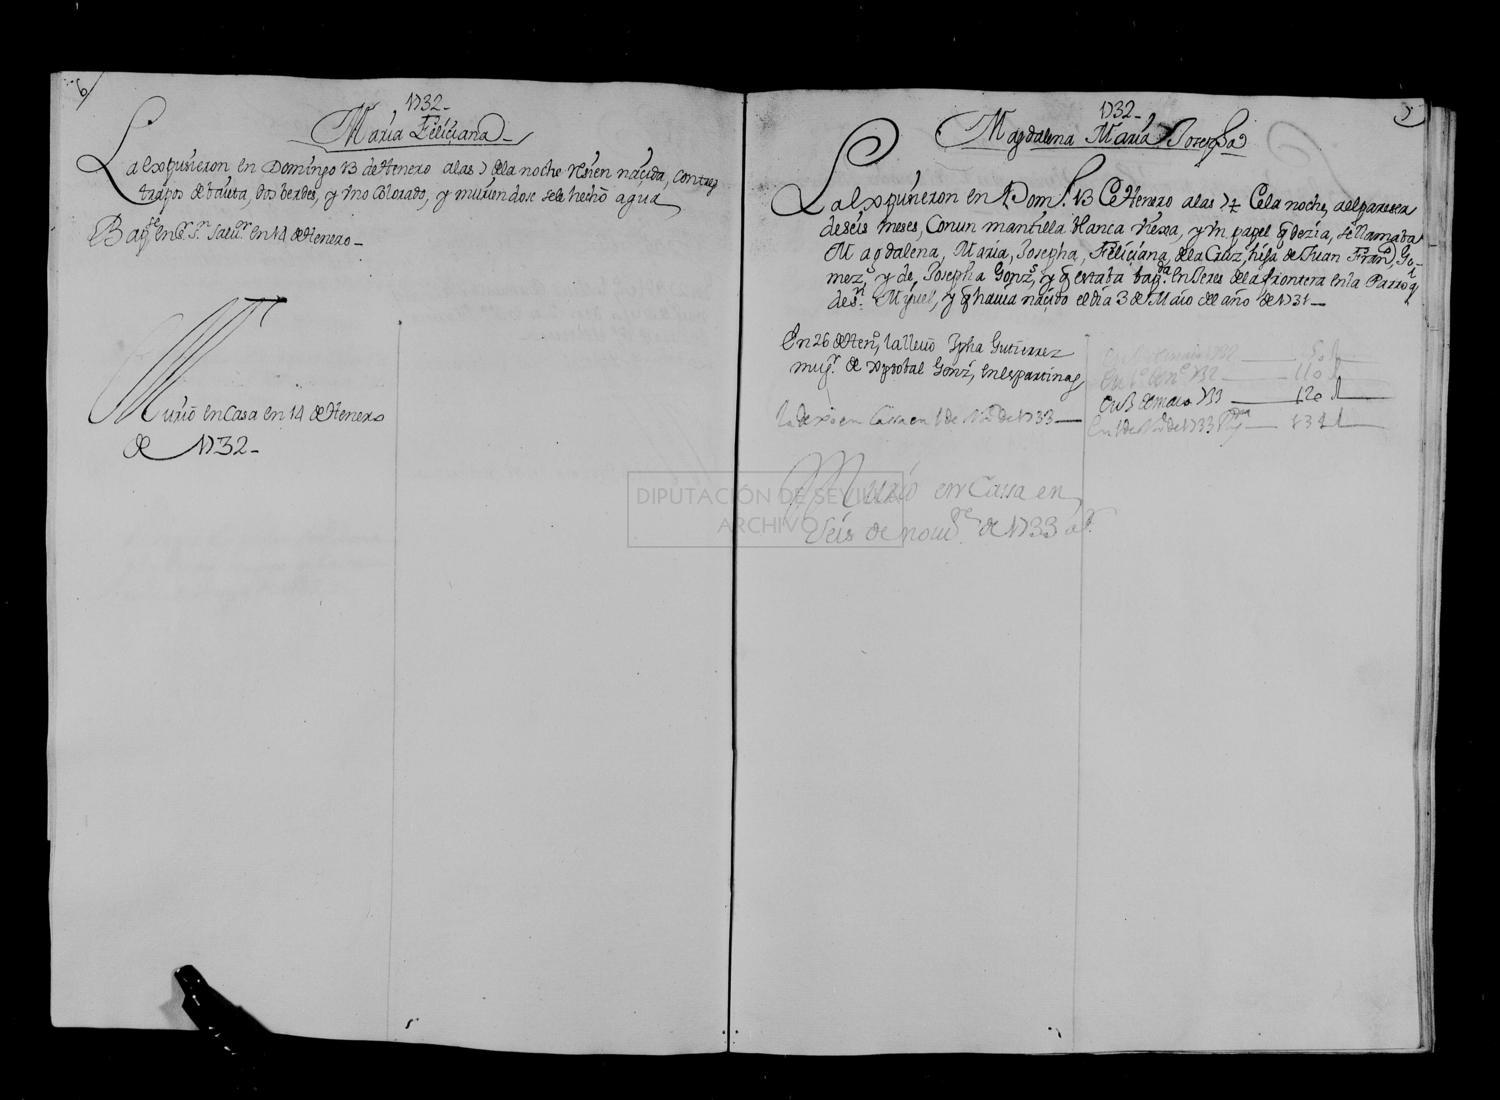 6
1732-
Maria Feliçiana-
La expusieron en Domingo 13 de Henero alas 7 de la noche reçien naçida, contres
trapos de bauta, dos berdes, y vno Colorado, y muriendose sele hechó agua
Bapse. en Sr. Sn. Salur. en 14 de Henero-
Murió en Casa en 14 de Henero
de 1732-
1732-
Magdalena Maria Josepha
La expusieron en Domo. 13 de Henero alas 7½ dela noche, al pareser
deseis meses, Con un mantilla blanca viexa, y vn papel q dezia, se llamaba
Magdalena, Maria, Josepha, Feliçiana, de la Cruz, hija de Juan Franco. Go-
mez, y de Josepha Gonzs. y q estaba bapda. en Xeres dela frontera en la Parroq
de Sn. Miguel, y q hauia naçido el dia 3 de Maio del año de 1731-
En 26 de Heno. la lleuó Jpha Gutierrez
mugr. de xptobal Gonz, en Espartinas
la dexo en Cassa en 1 de Nre de 1733-
150
110
en 3 de maio 733 120
en 1 de Nre de 1733 131
Murió en Cassa en
Seis de nouire. de 1733 as.
DIPUTACIÓN DE SEVILLA
ARCHIVO